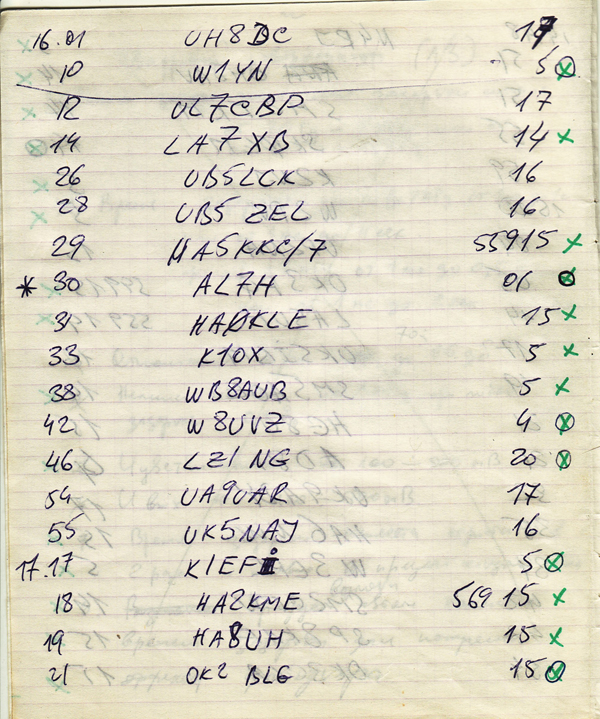 16.01 UH8DC 17
10 W1YN 5
12 UL7CBP 17
14 LA7XB 14 x
26 UB5LCK 16
28 UB5ZEL 16
29 HA5KKC/7 55915 x
* 30 AL7H 01
31 HAØKLE 15 x
33 K1OX 5 x
38 WB8AUB 5 x
42 W8UVZ 4
46 LZ1NG 20
54 UA9UAR 17
55 UK5NAJ 16
17.17 K1EFI 5
18 HA2KME 569 15 x
19 HA8UH 15 x
21 OK2BLG 15